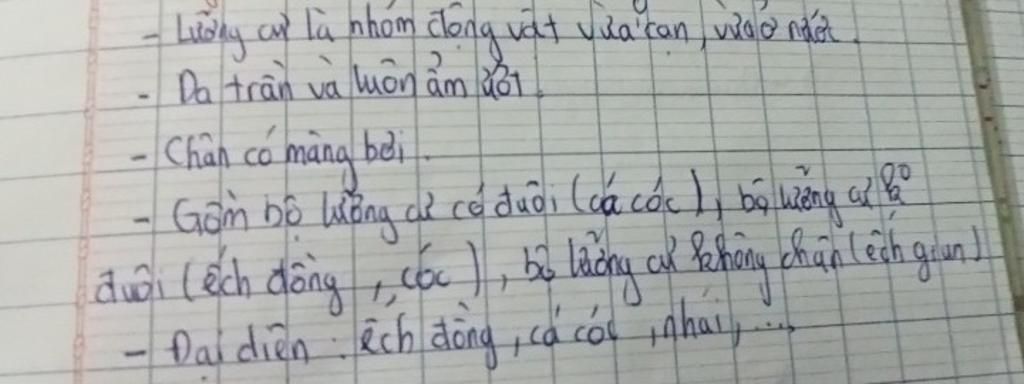 - Lưỡng cư là nhóm động vật vừa cạn, vừa ở nước.
- Da trần và luôn ẩm ướt.
- Chân có màng bơi.
- Gồm bộ lưỡng cư có đuôi (cá cóc), bộ lưỡng cư ko
đuôi (ếch đồng, cóc), bộ lưỡng cư không chân (ếch giun)
- Đại diện: ếch đồng, cá cóc, nhái,...